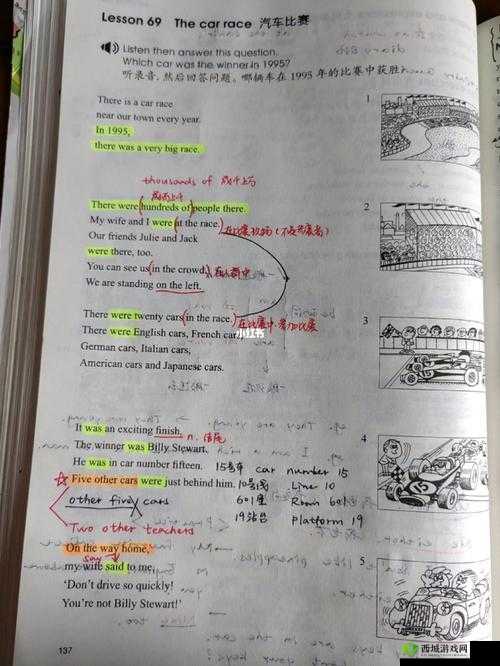 Lesson 69 The car race 汽车比赛
Listen then answer this question.
Which car was the winner in 1995?
听录音，然后回答问题。哪辆车在 1995 年的比赛中获胜
There is a car race
near our town every year.
In 1995,
there was a very big race.
1
thousands of 成千上万
成百上千
There were hundreds of people there.
My wife and I were at the race. 在比赛现场(不是参赛者)
Our friends Julie and Jack
were there, too.
You can see us in the crowd. 在人群中
We are standing on the left.
2
There were twenty cars in the race. 在比赛中,参加比赛
There were English cars, French cars,
German cars, Italian cars,
American cars and Japanese cars.
小红书
3
It was an exciting finish. n. 结尾
The winner was Billy Stewart.
He was in car number fifteen. 15号车 car number 15
Five other cars were just behind him. 10号线 Line 10
other five cars 601室 Room 601
19站台 platform 19
Two other teachers
4
15
'On the way home,'
say
my wife said to me,
'Don't drive so quickly!
You're not Billy Stewart!'
5
137
西城游戏网